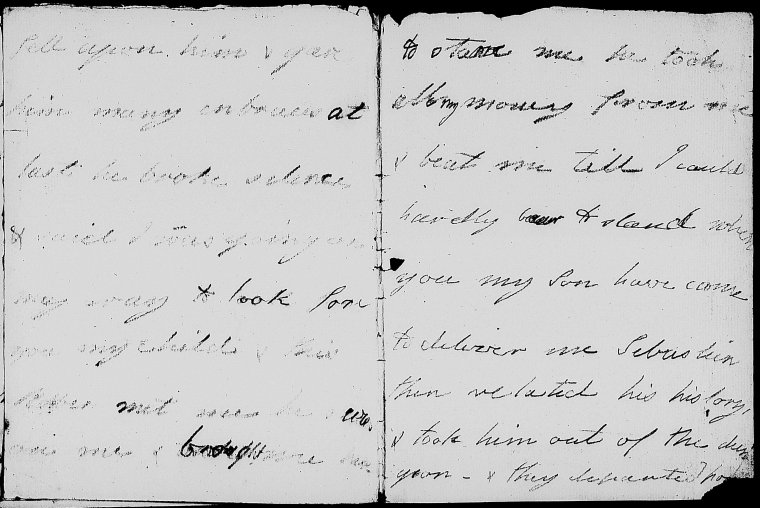 fell upon him & gave
him many embraces at
last he broke silence
& said I was going on
my way to look for
you my child & this
met me he
me & brought me
to starve me he took
all my money from me
& beat me till I could
hardly bear to stand when
you my Son have come
to deliver me Sebastien
then related his history,
& took him out of the dun
geon - & they departed